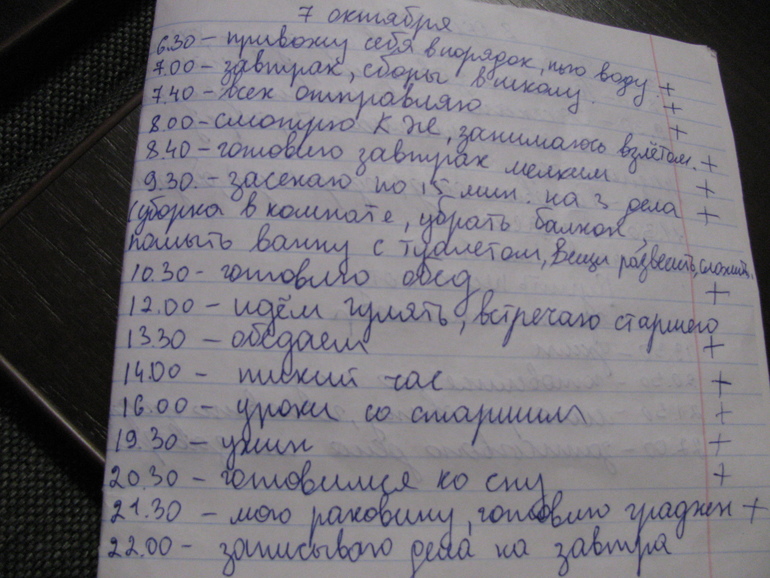 7 октября
6.30 - привожу себя в порядок, пью воду +
7.00 - завтрак, сборы в школу. +
7.40 - всех отправляю +
8.00 - смотрю КЖ, занимаюсь взлётом. +
8.40 - готовлю завтрак мелким +
9.30 - засекаю по 15 мин. на 3 дела +
(уборка в комнате, убрать балкон,
помыть ванну с туалетом, вещи развесить, сложить.
10.30 - готовлю обед +
12.00 - идём гулять, встречаю старшего
13.30 - обедаем +
14.00 - тихий час +
16.00 - уроки со старшим +
19.30 - ужин +
20.30 - готовимся ко сну +
21.30 - мою раковину, готовлю граджен +
22.00 - записываю дела на завтра